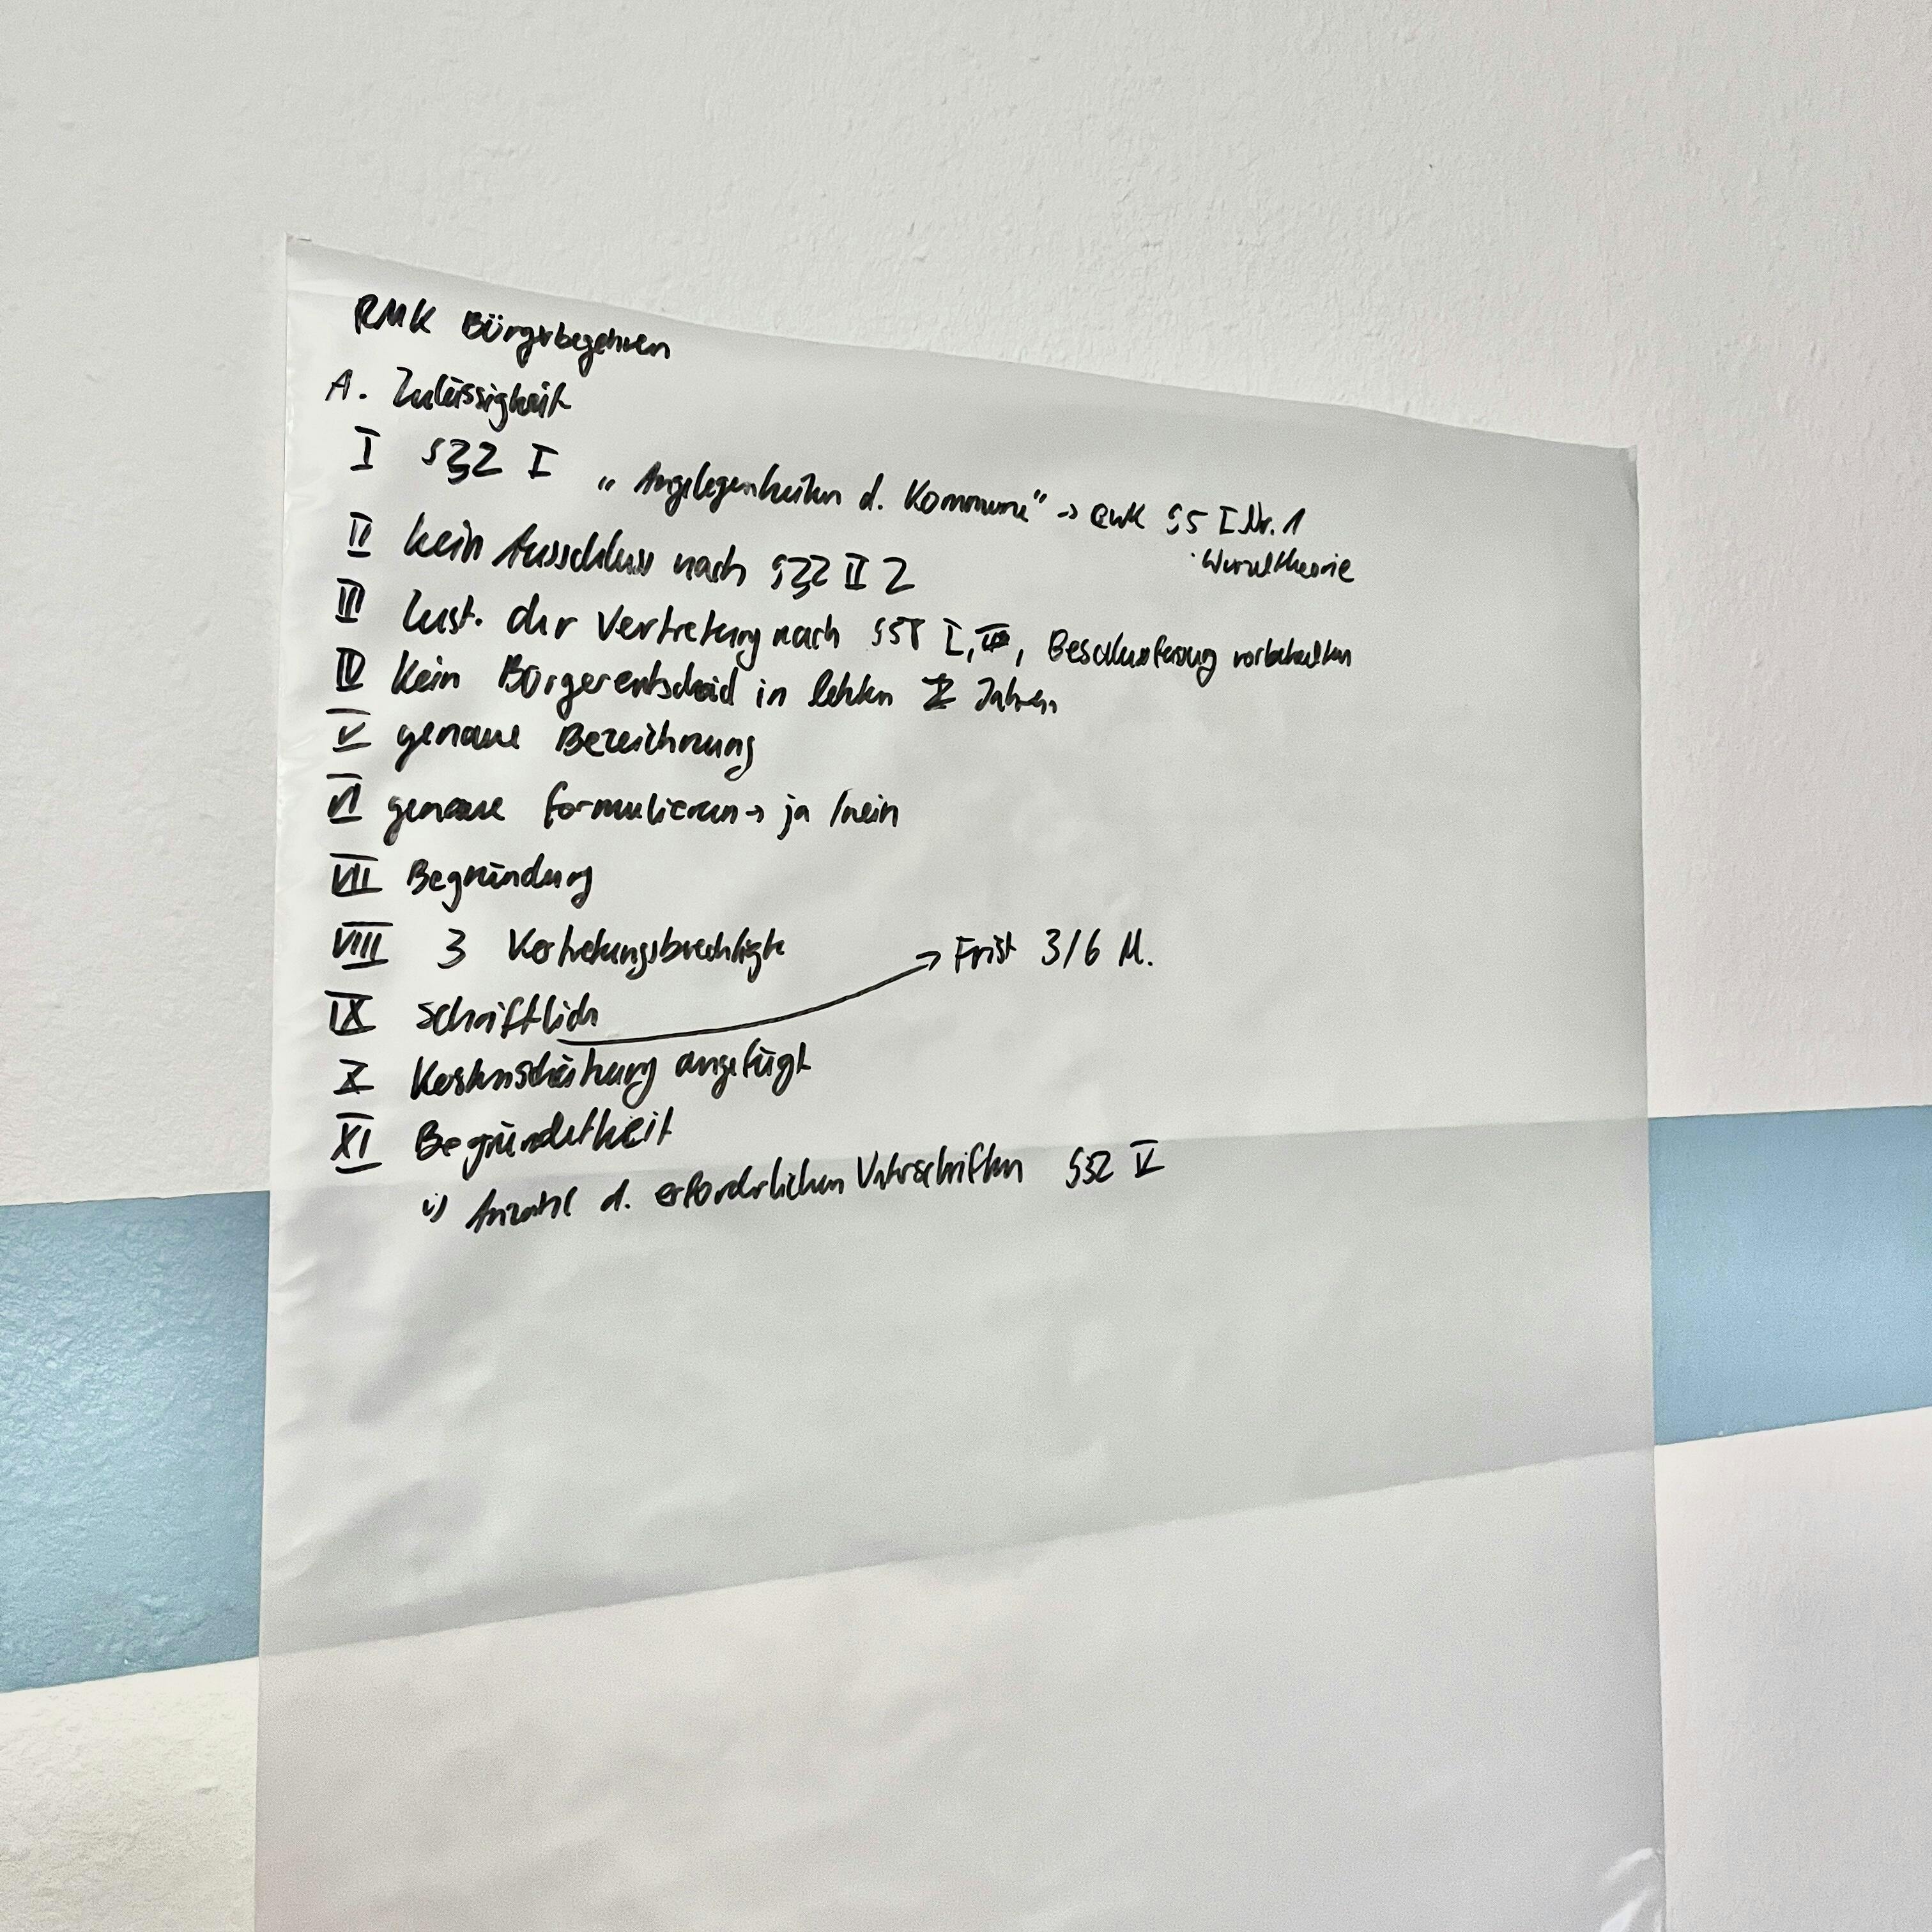 RMK Bürgerbegehren
A. Zulässigkeit
I §32 I „Angelegenheiten d. Kommune" → eWK §5 I Nr. 1
· Wurzeltheorie
II kein Ausschluss nach §32 II 2
III Zust. der Vertretung nach §58 I, III, Beschlussfassung vorbehalten
IV Kein Bürgerentscheid in letzten 2 Jahren
V genaue Bezeichnung
VI genaue formulieren → ja / nein
VII Begründung
VIII 3 Vertretungsberechtigte
→ Frist 3/6 M.
IX schriftlich
X Kostenschätzung angefügt
XI Begründetheit
i) Anzahl d. erforderlichen Unterschriften §32 V